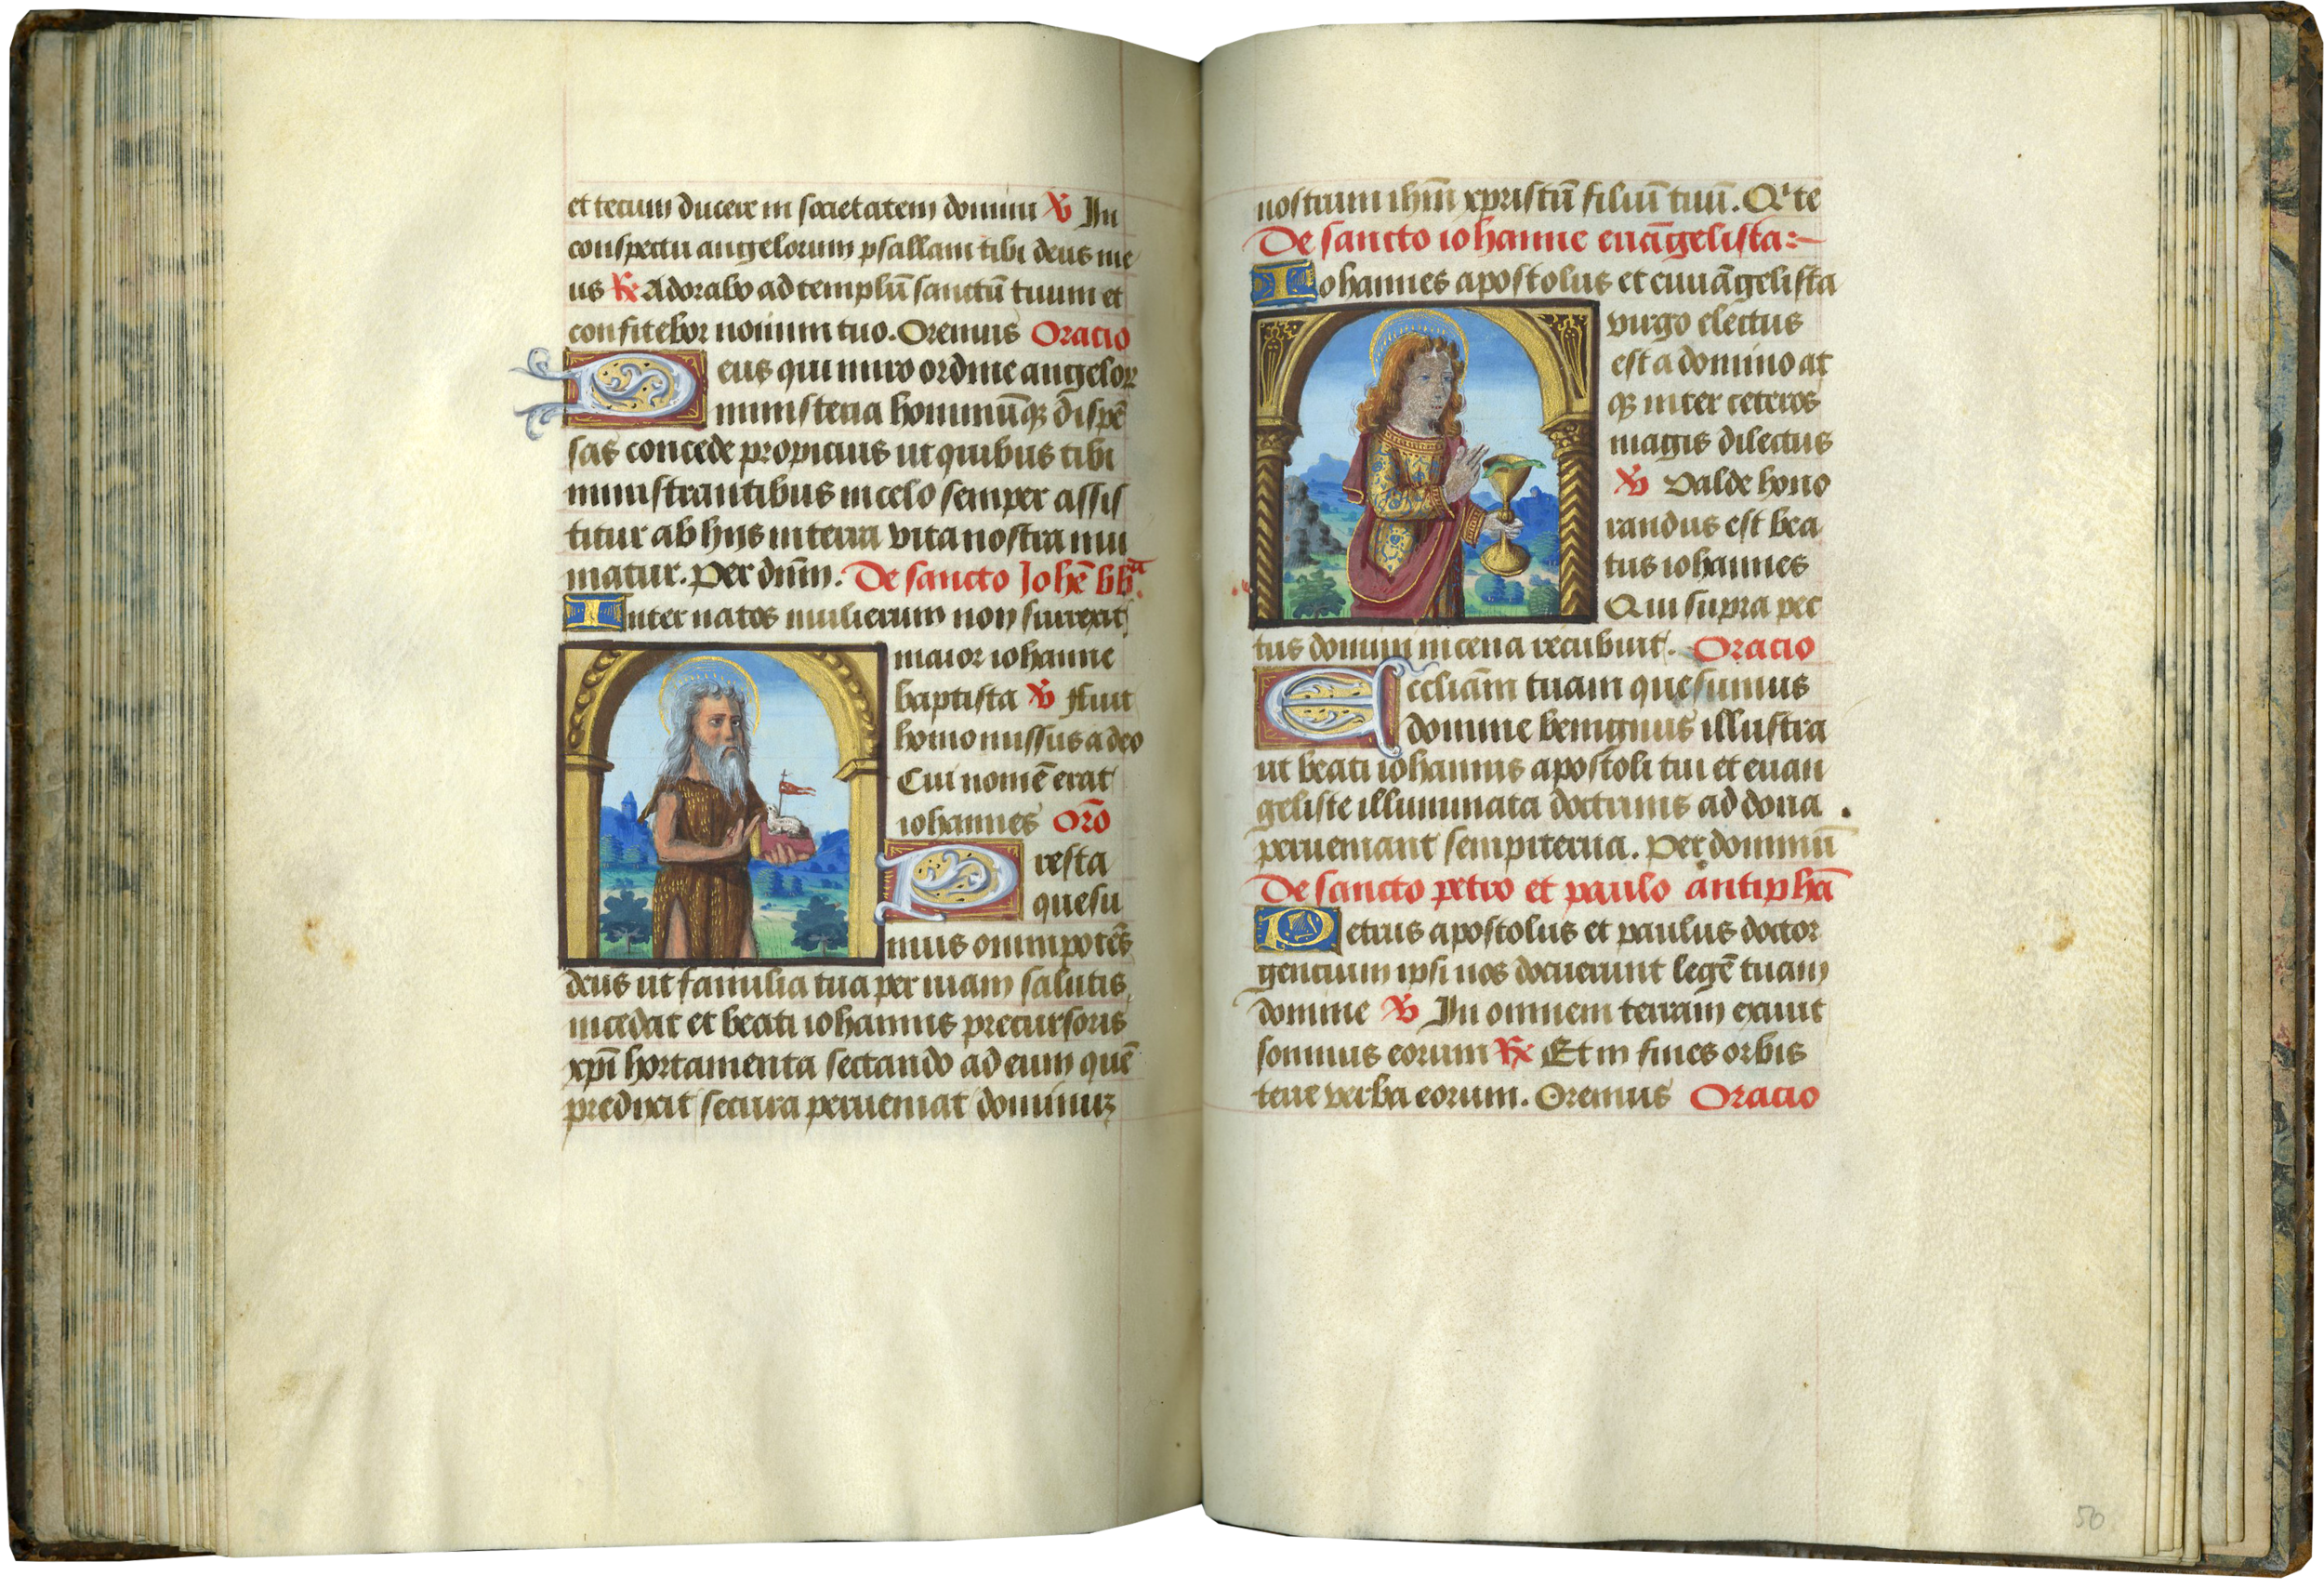 et tecum ducere in societatem domini ℣ In
conspectu angelorum psallam tibi deus me
us ℟ Adorabo ad templū sanctū tuum et
confitebor nomini tuo. Oremus Oracio
Deus qui miro ordine angeloꝝ
ministeria hominūqꝫ dispē
sas concede propicius ut quibus tibi
ministrantibus in celo semper assis
titur ab hijs in terra vita nostra mu
niatur. Per dn̄m. De sancto Johē bb̄ᵗᵃ.
Inter natos mulierum non surrexit
maior iohanne
baptista ℣ Fuit
homo missus a deo
Cui nomē erat
iohannes Or̄o
Presta
quesu
mus omnipotēs
deus ut familia tua per viam salutis
incedat et beati iohannis precursoris
xp̄i hortamenta sectando ad eum quē
predixit secura perveniat dominuꝫ
nostrum ih̄m xpristū filiū tuū. Qⁱ te
De sancto iohanne euāgelista:~
Iohannes apostolus et euuāgelista
virgo electus
est a domino at
qꝫ inter ceteros
magis dilectus
℣ Valde hono
randus est bea
tus iohannes
Qui supra pec
tus domini in cena recubuit. Oracio
Eccliām tuam quesumus
domine benignus illustra
ut beati iohannis apostoli tui et euan
geliste illuminata doctrinis ad dona
perueniant sempiterna. Per dominū
De sancto petro et paulo antiphā
Petrus apostolus et paulus doctor
gencium ipsi nos docuerunt legē tuam
domine ℣ In omnem terram exiuit
sonnus eorum ℟ Et in fines orbis
terre verba eorum. Oremus Oracio
50